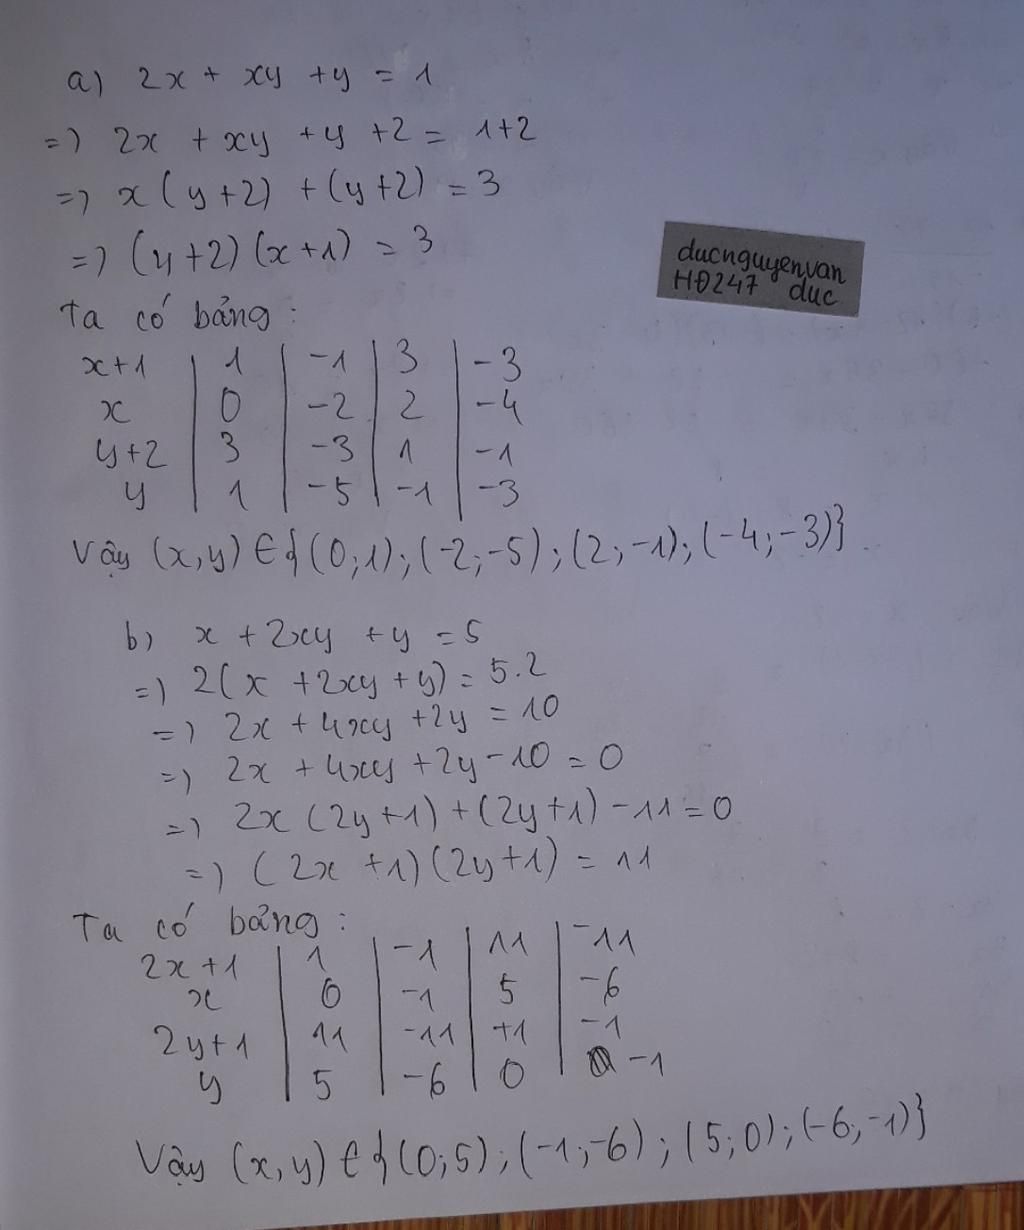 a) 2x + xy + y = 1
=) 2x + xy + y + 2 = 1+2
=) x(y+2) + (y+2) = 3
=) (y+2)(x+1) = 3
ducnguyenvan
HĐ247 duc
Ta có bảng:
x+1 | 1 | -1 | 3 | -3
x | 0 | -2 | 2 | -4
y+2 | 3 | -3 | 1 | -1
y | 1 | -5 | -1 | -3
Vậy (x,y) ∈ {(0;1); (-2;-5); (2;-1); (-4;-3)}
b) x + 2xy + y = 5
=) 2(x + 2xy + y) = 5.2
=) 2x + 4xy + 2y = 10
=) 2x + 4xy + 2y - 10 = 0
=) 2x(2y+1) + (2y+1) - 11 = 0
=) (2x+1)(2y+1) = 11
Ta có bảng:
2x+1 | 1 | -1 | 11 | -11
x | 0 | -1 | 5 | -6
2y+1 | 11 | -11 | +1 | -1
y | 5 | -6 | 0 | -1
Vậy (x,y) ∈ {(0;5); (-1;-6); (5;0); (-6;-1)}